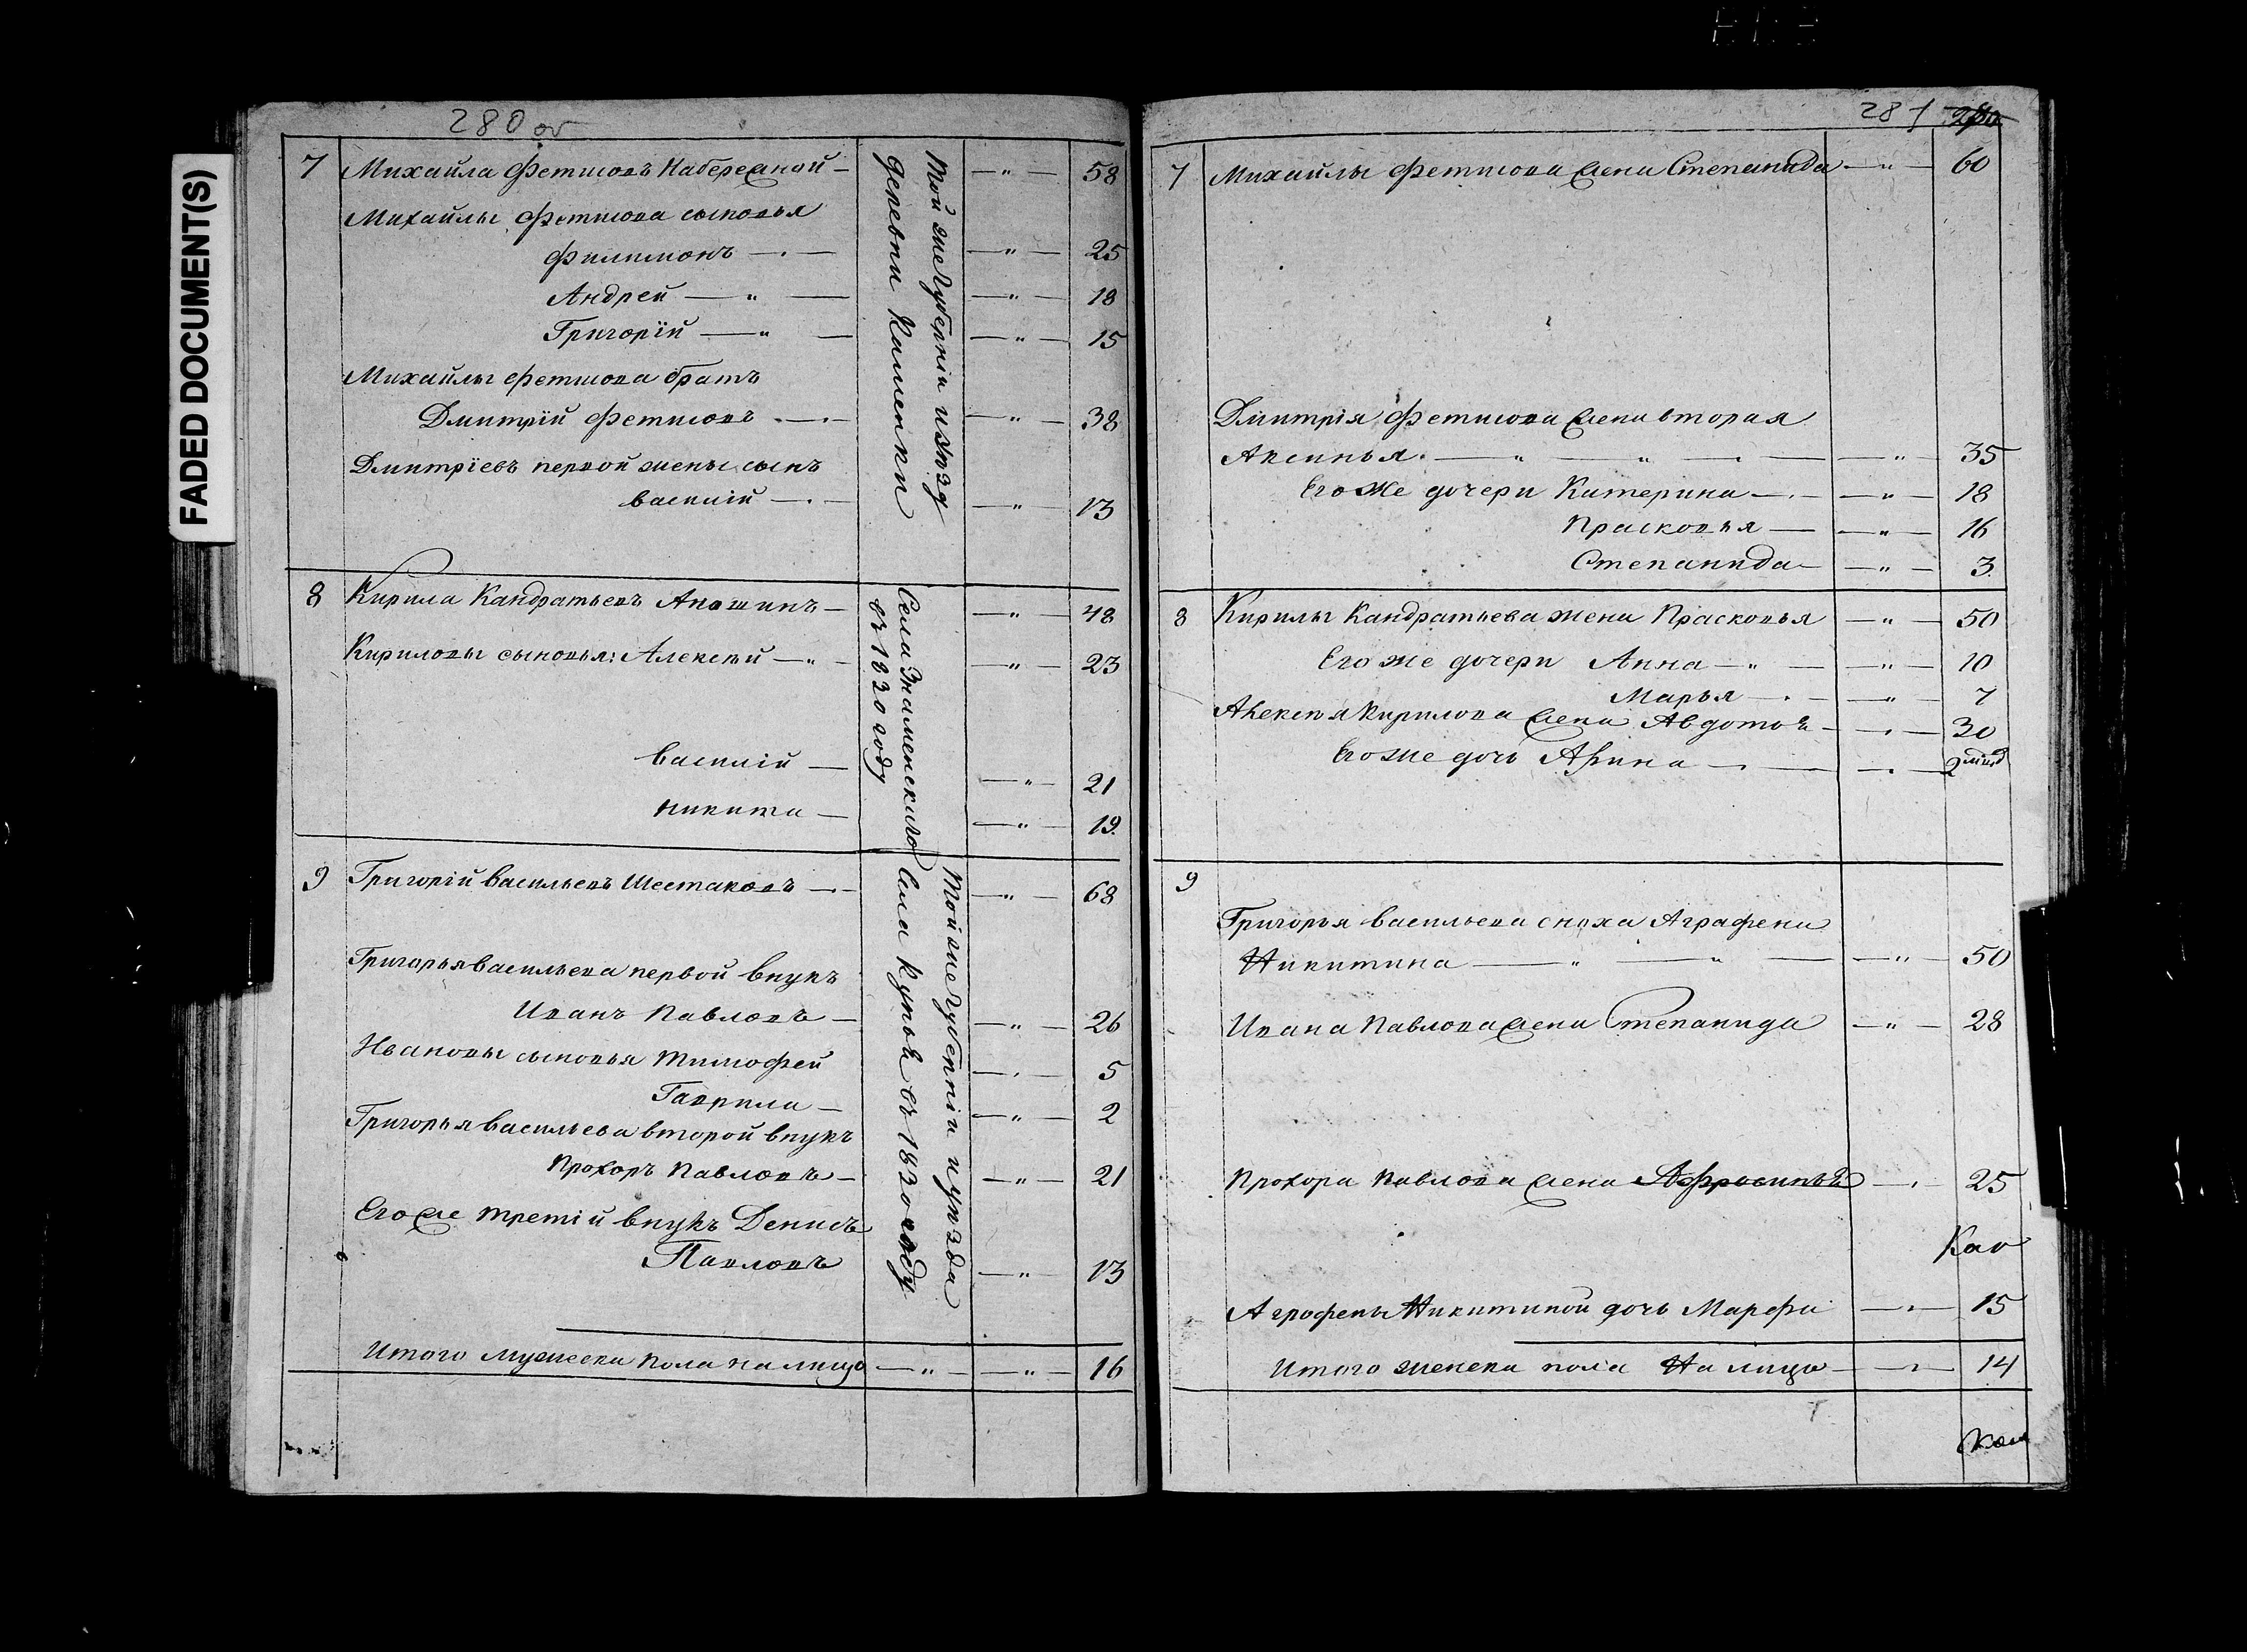 FADED DOCUMENT(S)
280 об
7 Михайла Фетисовъ Набережной — " — 58
Михайлы Фетисова сыновья
Филимонъ — " — 25
Андрей — " — 18
Григорій — " — 15
Михайлы Фетисова братъ
Дмитрій Фетисовъ — " — 38
Дмитріевъ первой жены сынъ
Василій — " — 13
Той же губерніи и уѣзд
деревни Каменки
8 Кирила Кандратьевъ Апошинъ — " — 48
Кириловы сыновья: Алексѣй — " — 23
Василій — " — 21
Никита — " — 19
Села Знаменскаго
въ 1830 году
9 Григорій Васильевъ Шестаковъ — " — 68
Григорья Васильева первой внукъ
Иванъ Павловъ — " — 26
Ивановы сыновья Тимофей — 5
Гаврила — " — 2
Григорья Васильева второй внукъ
Прохоръ Павловъ — " — 21
Его же третій внукъ Денисъ
Павловъ — " — 13
Той же губерніи и уѣзда
Села въ 1830 году
Итого мужеска пола на лицо — " — " — 16
281
7 Михайлы Фетисова жена Степанида — " — 60
Дмитрія Фетисова жена вторая
Аксинья — " — 35
Его же дочери Катерина — " — 18
Прасковья — " — 16
Степанида — " — 3
8 Кирилы Кандратьева жена Прасковья — " — 50
Его же дочери Анна — " — 10
Марья — " — 7
Алексѣя Кирилова жена Авдотья — 30
Его же дочь Арина — 2
9
Григорья Васильева сноха Аграфена
Никитина — " — 50
Ивана Павлова жена Степанида — " — 28
Прохора Павлова жена Афросинья — 25
Аграфены Никитиной дочь Марфа — 15
Итого женска пола на лицо — 14